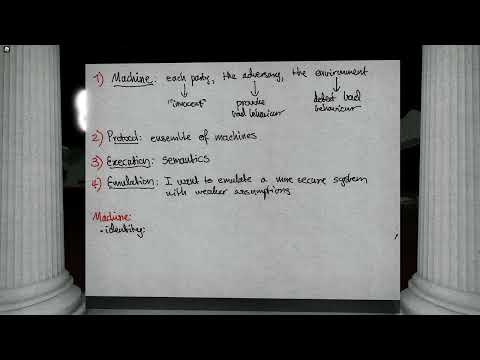 1) Machine: each party, the adversary, the environment
"innocent" provoke bad behaviour detect bad behaviour
2) Protocol: ensemble of machines
3) Execution: semantics
4) Emulation: I want to emulate a more secure system
with weaker assumptions
Machine:
- identity: